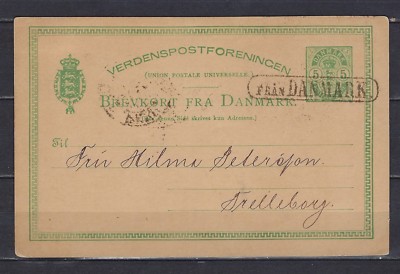 VERDENSPOSTFORENINGEN
(UNION POSTALE UNIVERSELLE.)
DANMARK
5 5
FRÅN DANMARK
BREVKORT FRA DANMARK.
(Paa denne Side skrives kun Adressen.)
Til
Frü Hilma Petersson.
Trelleborg.